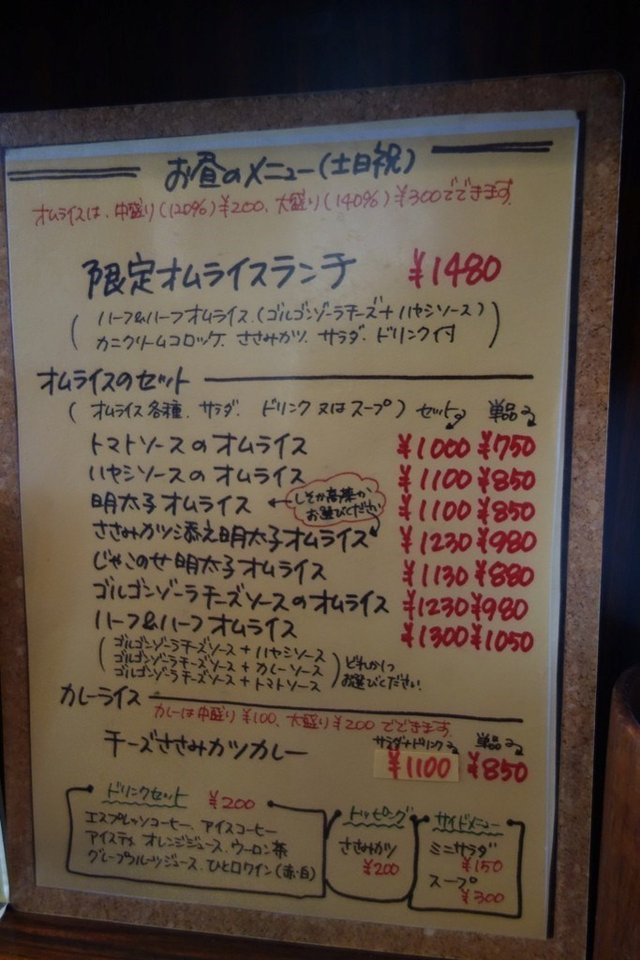 お昼のメニュー(土日祝)
オムライスは、中盛り(120%)¥200、大盛り(140%)¥300でできます。
限定オムライスランチ ¥1480
(ハーフ&ハーフオムライス(ゴルゴンゾーラチーズ+ハヤシソース)
カニクリームコロッケ、ささみかつ、サラダ、ドリンク付)
オムライスのセット
(オムライス各種、サラダ、ドリンク又はスープ) セット 単品
トマトソースのオムライス ¥1000 ¥750
ハヤシソースのオムライス ¥1100 ¥850
明太子オムライス ¥1100 ¥850
しそか高菜か
お選びください
ささみかツ添え明太子オムライス ¥1230 ¥980
じゃこのせ明太子オムライス ¥1130 ¥880
ゴルゴンゾーラチーズソースのオムライス ¥1230 ¥980
ハーフ&ハーフオムライス ¥1300 ¥1050
(ゴルゴンゾーラチーズソース+ハヤシソース
ゴルゴンゾーラチーズソース+カレーソース
ゴルゴンゾーラチーズソース+トマトソース)
どれか1つ
お選びください!
カレーライス
カレーは中盛り¥100、大盛り¥200でできます。
サラダ+ドリンク 単品
チーズささみカツカレー ¥1100 ¥850
ドリンクセット ¥200
エスプレッソコーヒー、アイスコーヒー
アイスティ、オレンジジュース、ウーロン茶
グレープフルーツジュース、ひと口ワイン(赤・白)
トッピング
ささみかツ
¥200
サイドメニュー
ミニサラダ
¥150
スープ
¥300